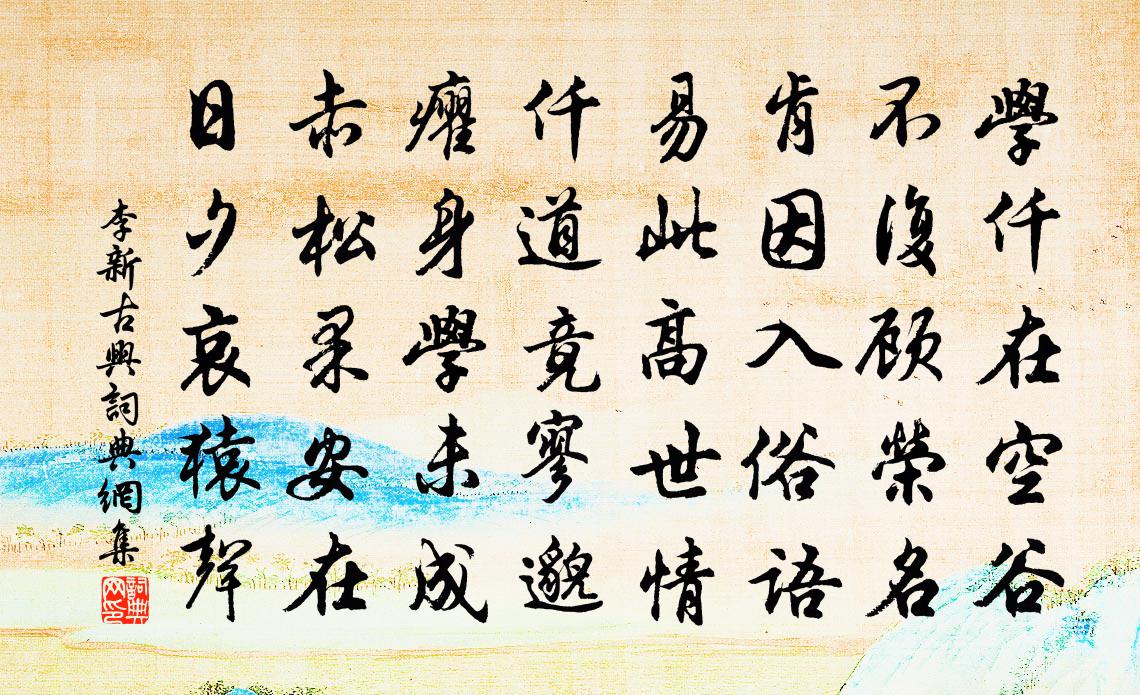 學仟在空谷
不復顧榮名
肯因入俗語
易此高世情
仟道竟寥邈
癯身學未成
赤松果安在
日夕哀猿聲
李新古興詞典網集
詞典网印